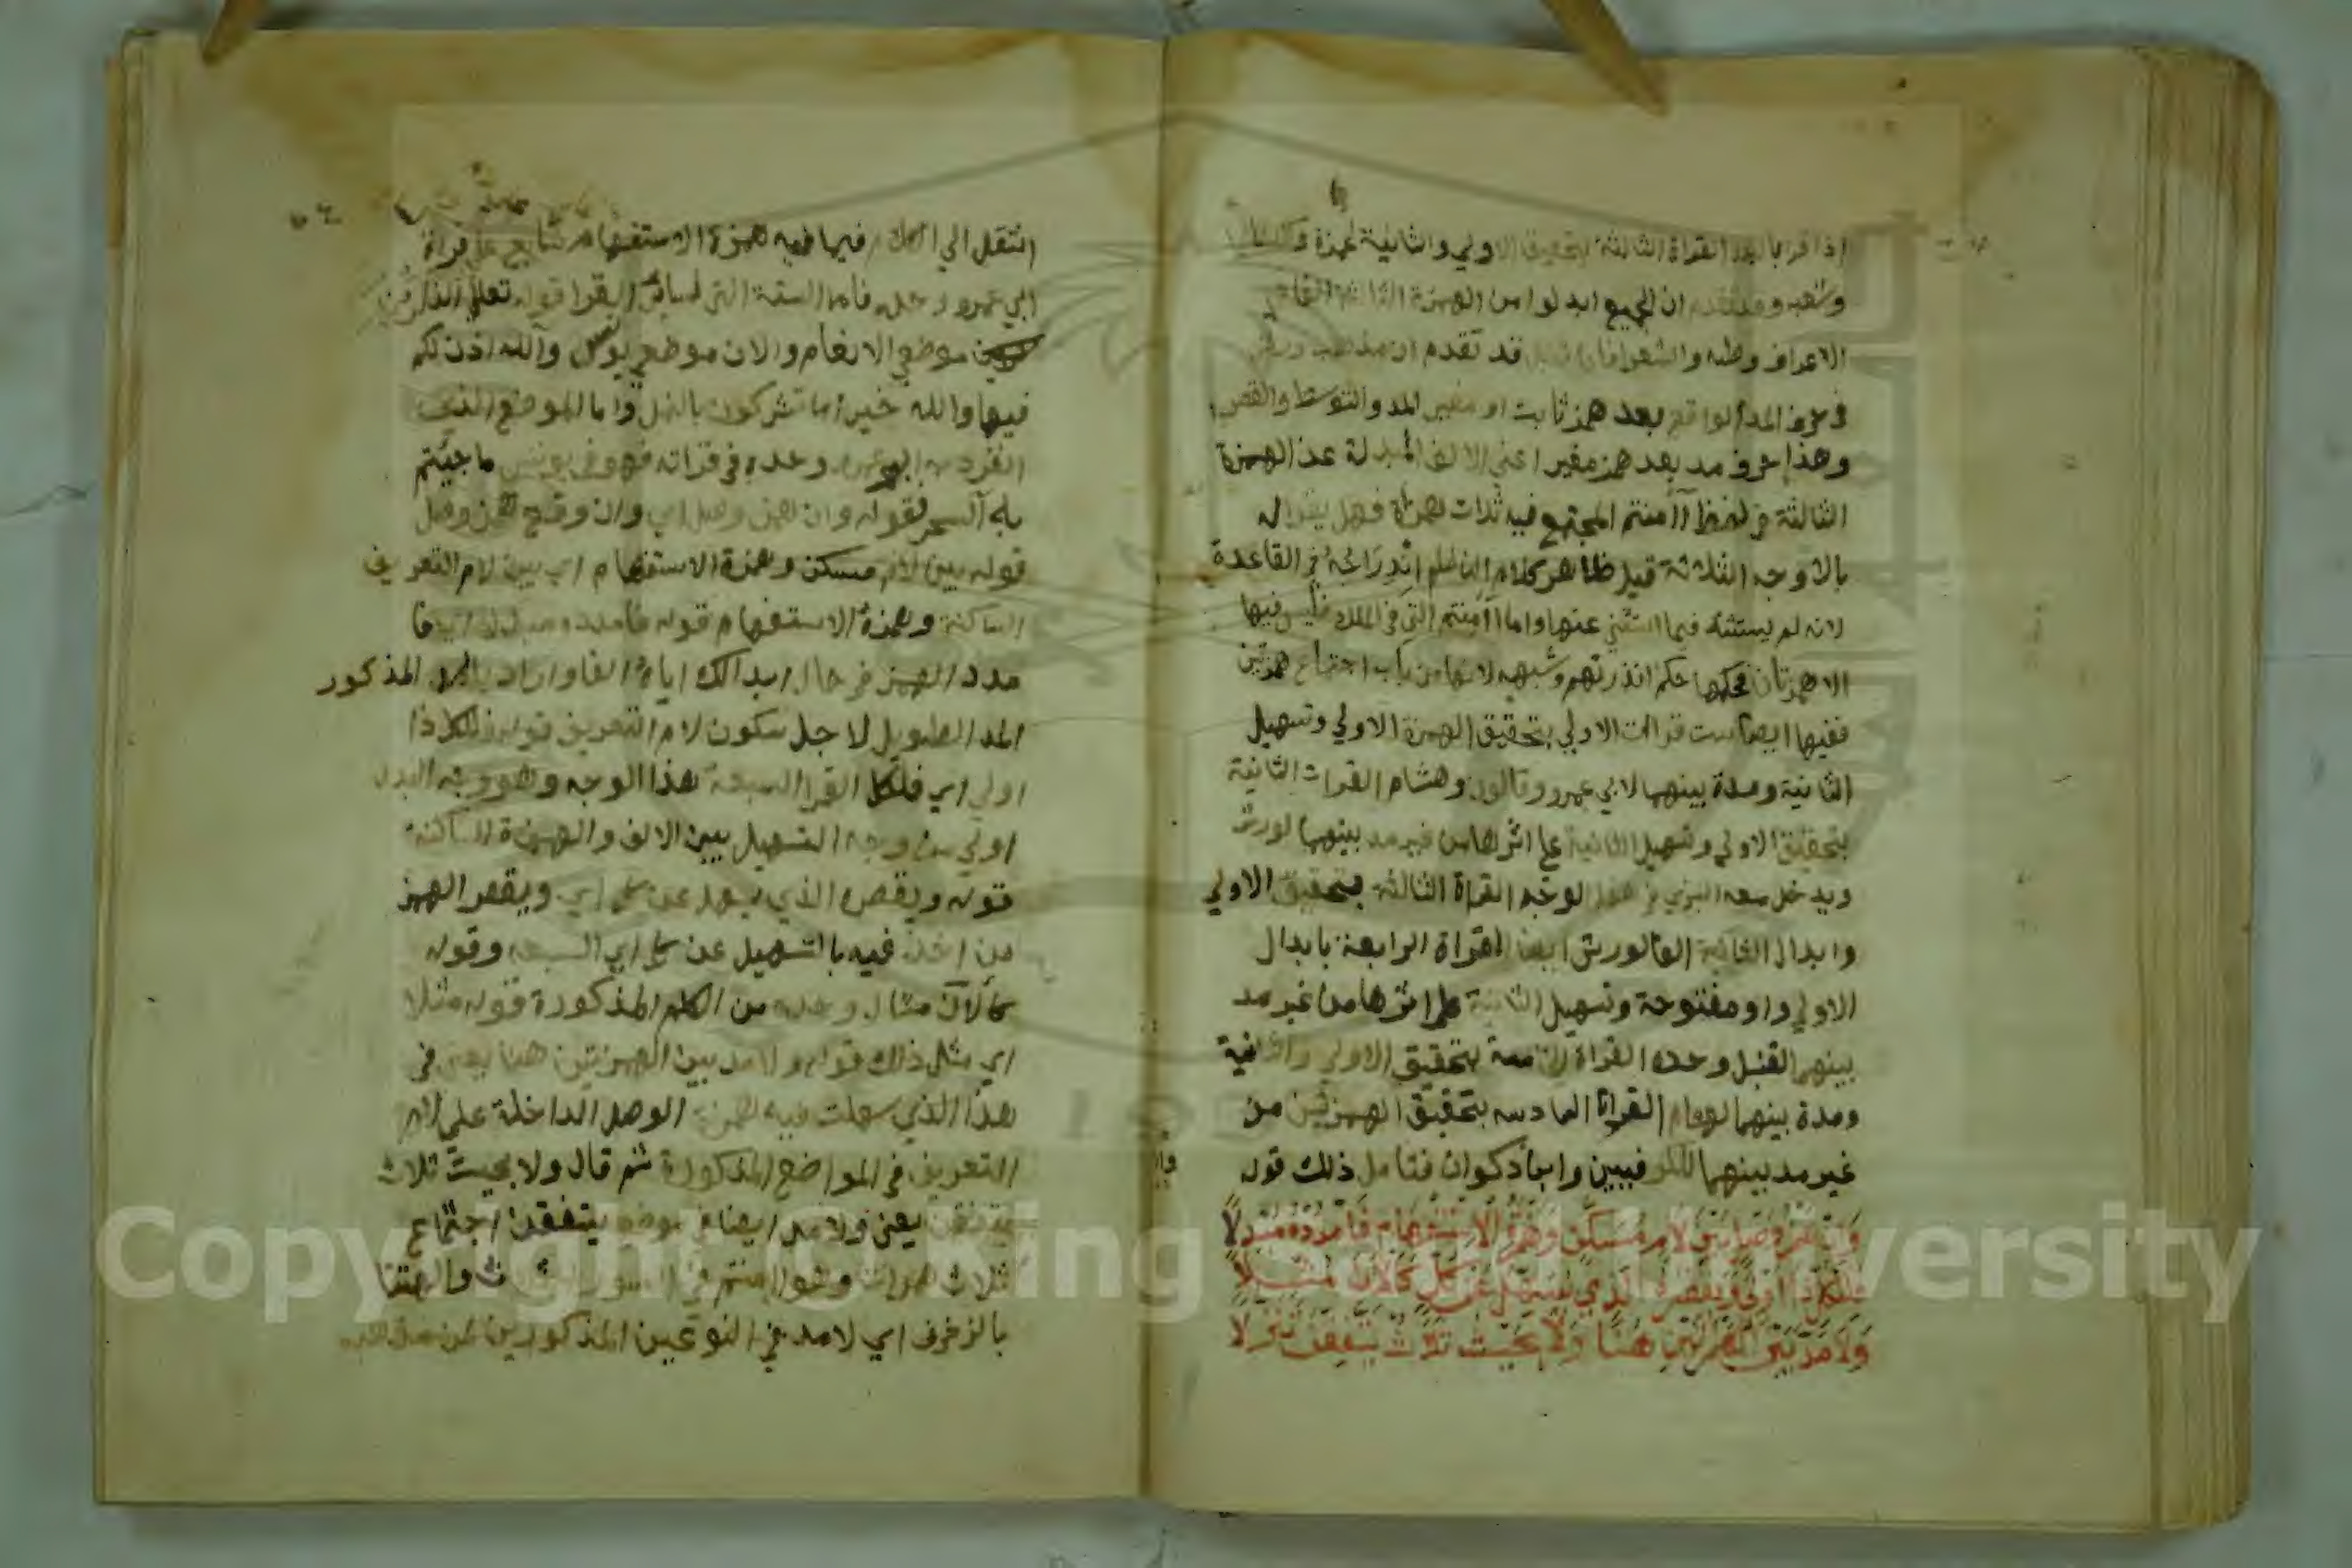 اذا قرا بالمد القراة الثالثة بتحقيق الاولي والثانية لحمزة والكسائي
وشعبه وقد تقدم ان الجميع ابدلوا من الهمزة الثالثة الفا في
الاعراف وطه والشعرا فان قيل قد تقدم ان مذهب ورش
في حرف المد الواقع بعد همز ثابت او مغير المد والتوسط والقصر
وهذا حرف مد بعد همز مغير اعني الالف المبدلة عن الهمزة
الثالثة في لفظ أآمنتم المجتمع فيه ثلاث همزات فهل يقرا له
بالاوجه الثلاثة قيل ظاهر كلام الناظم اندراجه في القاعدة
لانه لم يستثنه فيما استثني عنها واما أأمنتم التي في الملك فليس فيها
الا همزتان فحكمها حكم انذرتهم وشبهه لانها من باب اجتماع همزتين
ففيها ايضا ست قراات الاولي بتحقيق الهمزة الاولي وتسهيل
الثانية ومدة بينهما لابي عمرو وقالون وهشام القراة الثانية
بتحقيق الاولي وتسهيل الثانية علي اثرها من غير مد بينهما لورش
ويدخل معه البزي في هذا الوجه القراة الثالثة بتحقيق الاولي
وابدال الثانية الفا لورش ايضا القراة الرابعة بابدال
الاولي واو مفتوحة وتسهيل الثانية علي اثرها من غير مد
بينهما لقنبل وحده القراة الخامسة بتحقيق الاولي والثانية
ومدة بينهما لهشام القراة السادسه بتحقيق الهمزتين من
غير مد بينهما للكوفيين وابن ذكوان فتامل ذلك قوله
وَاِنْ هَمْزُ وَصْلٍ بَيْنَ لَامٍ مُسَكَّنٍ وَهَمْزَةِ الْاِسْتِفْهَامِ فَامْدُدْهُ مُبْدِلَا
فَلِلْكُلِّ ذَا اَوْلَى وَيَقْصُرُهُ الَّذِي يُسَهِّلُ عَنْ كُلٍّ كَآلَانَ مُثِّلَا
وَلَا مَدَّ بَيْنَ الْهَمْزَتَيْنِ هُنَا وَلَا بِحَيْثُ ثَلَاثٌ يَتَّفِقْنَ تَنَزُّلَا
انتقل الي الكلام فيما فيه همزة الاستفهام تتابع علي قراة
ابي عمرو وحده فاما الستة التي لسائر القرا قوله تعالي الذكرين
موضعي الانعام والان موضعي يونس وآلله اذن لكم
فيها والله خير اما تشركون بالنمل واما الموضع الذي
انفرد به ابو عمرو وحده في قراته فهو في يونس ما جيتم
به آلسحر فقوله وان همز وصل اي وان وقع همز وصل
قوله بين لام مسكن وهمزة الاستفهام اي بين لام التعريف
الساكنة وهمزة الاستفهام قوله فامدده مبدلا اي فا
مدد الهمز في حال ابدالك اياه الفا واراد بالمد المذكور
المد الطويل لاجل سكون لام التعريف قوله فللكل ذا
اولي اي فلكل القرا السبعة هذا الوجه وهو وجه البدل
اولي من وجه التسهيل بين الالف والهمزة الساكنة
قوله ويقصره الذي يسهل عن كل اي ويقصر الهمز
من اخذ فيه بالتسهيل عن كل اي السبعه وقوله
كآلان مثال وحده من الكلم المذكورة قوله مثلا
اي مثل ذلك قوله ولا مد بين الهمزتين هنا يعني في
هذا الذي سهلت فيه همزة الوصل الداخلة علي لام
التعريف في المواضع المذكورة ثم قال ولا بحيث ثلاث
يتفقن يعني ولا مد ايضا في موضع يتفقن اجتماع
ثلاث همزات وهو اامنتم في السور الثلاث واالهتنا
بالزخرف اي لا مد في النوعين المذكورين لمن مذهبه